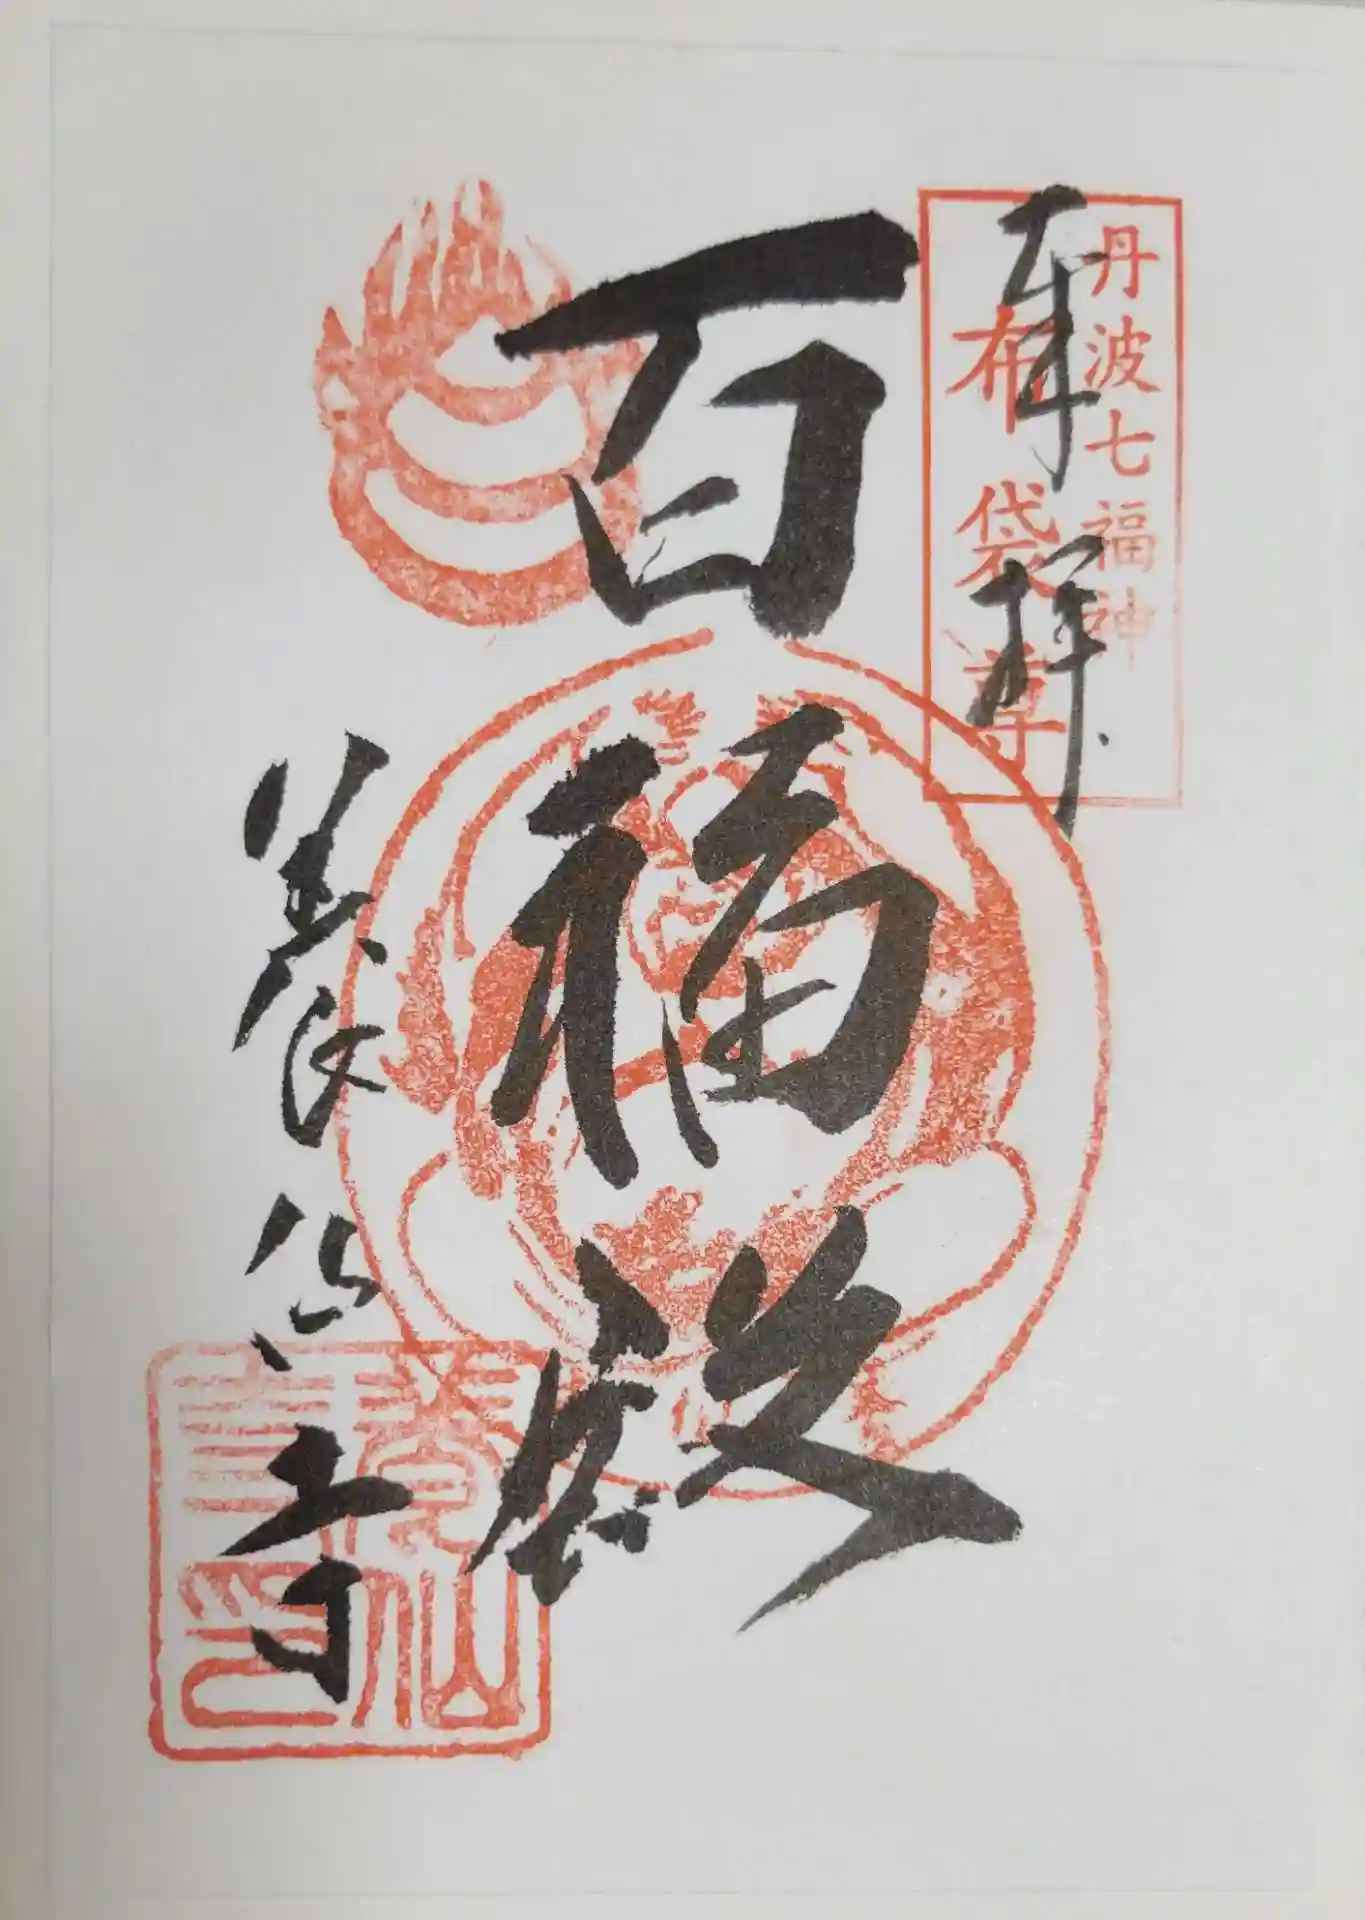 奉拝
丹波七福神
布袋尊
百福殿
養仙寺
養仙寺印